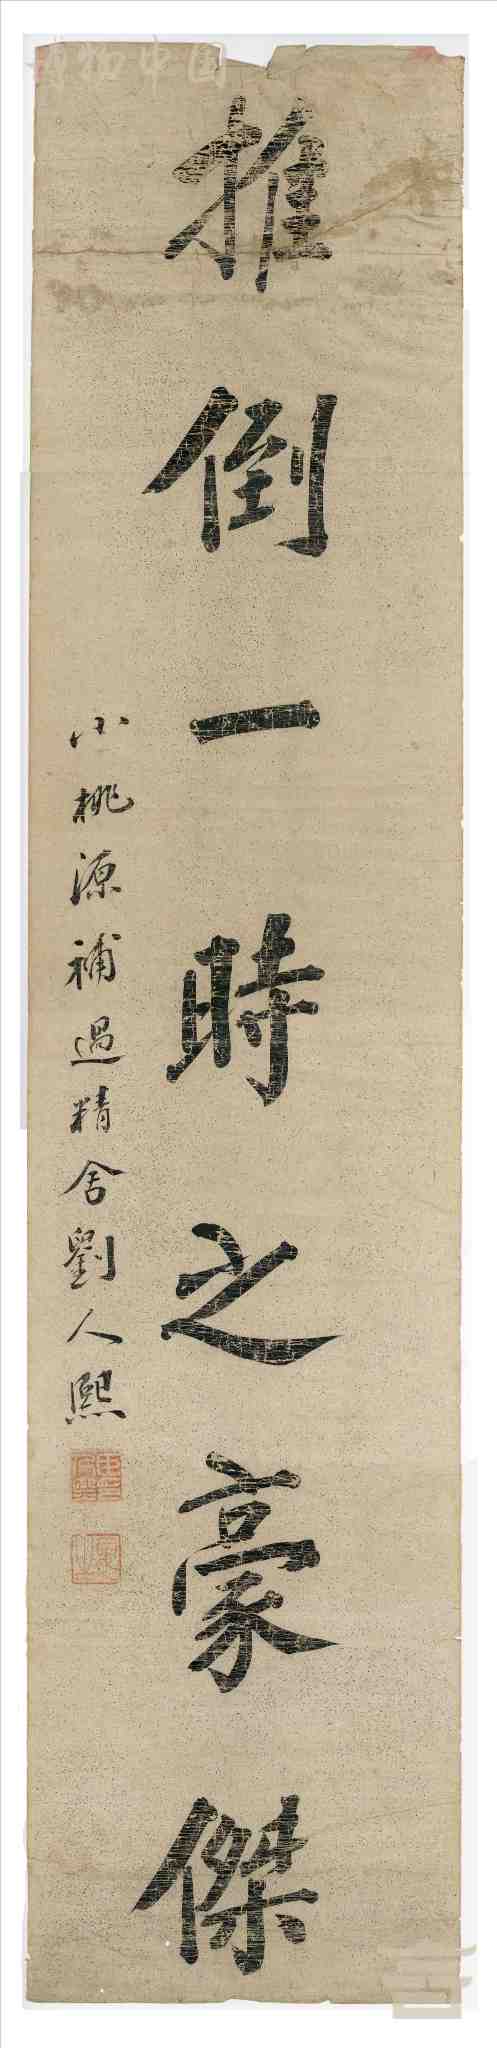 博物中国
推倒一時之豪傑
小桃源補過精舍劉人熙